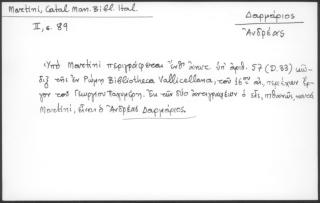 Martini, Catal. Man. Bibl. Ital.
II, σ. 89
Δαρμάριος
Ἀνδρέας
Ὑπὸ Martini περιγράφεται ὑπ' ἀριθ. 57 (D.33) κώ-
διξ τῆς ἐν Ρώμῃ Bibliotheca Vallicellana, τοῦ 16ου αἰ. περιέχων ἔρ-
γον τοῦ Γεωργίου Παχυμέρη. Ἐκ τῶν δύο ἀντιγραφέων ὁ εἷς, πιθανῶς, κατὰ
Martini, εἶναι ὁ Ἀνδρέας Δαρμάριος.